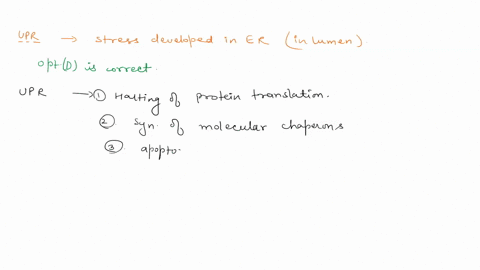 UPR → stress developed in ER (in lumen)
opt(D) is correct.
UPR → ① Halting of protein translation.
② Syn. of molecular chaperons
③ apopto.